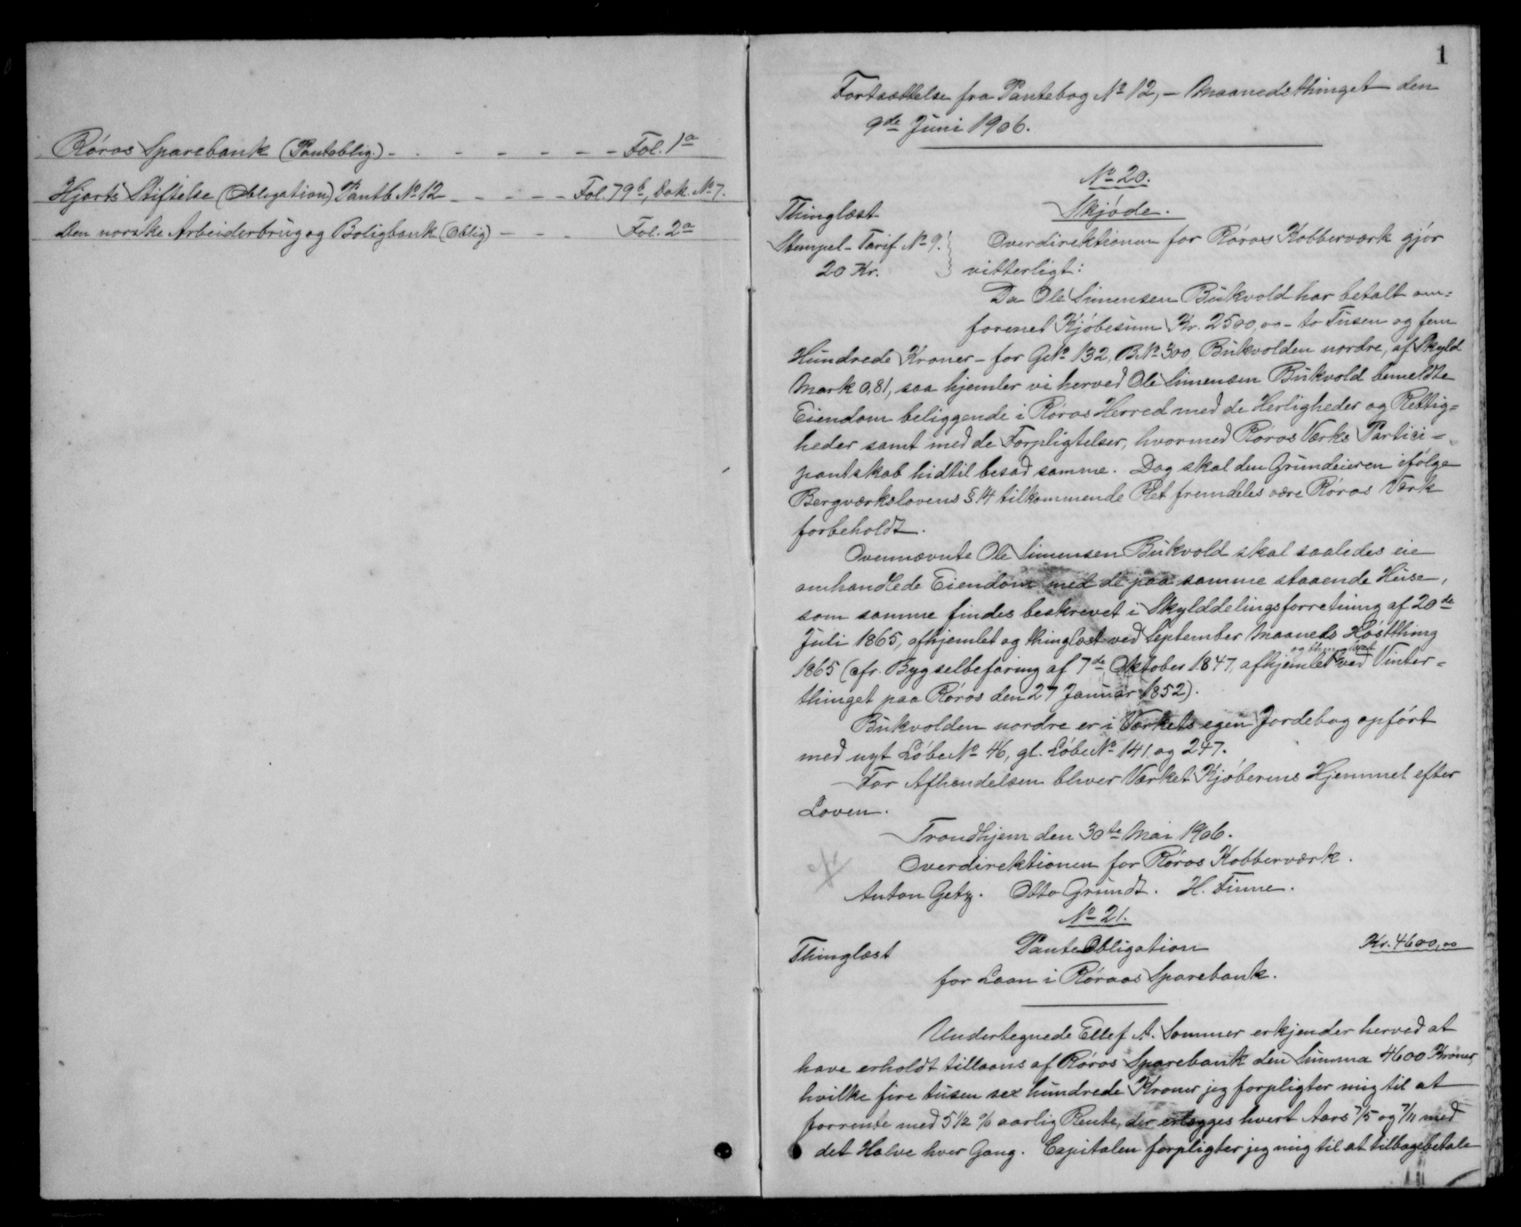 Røros Sparebank (Pantoblig.) - - - - - - - Fol. 1a
Hjorts Stiftelse (Obligation) Pantb. No 12 - - - - - Fol. 79b, Dok. No 7.
Den norske Arbeiderbrug og Boligbank (Oblig) - - - Fol. 2a
1
Fortsættelse fra Pantebog No 12, - Maanedsthinget den
9de Juni 1906.
No 20.
Thinglæst
Skjøde.
Stempel-Tarif No 9.
20 Kr.
Overdirektionen for Røros Kobberværk gjør
vitterligt:
Da Ole Simensen Bukvold har betalt om=
forenet Kjøbesum Kr. 2500,00 - to Tusen og fem
Hundrede Kroner - for GNo 132, BNo 300, Bukvolden nordre, af Skyld
Mark 0,81, saa hjemler vi herved Ole Simensen Bukvold bemeldte
Eiendom beliggende i Røros Herred med de Herligheder og Rettig=
heder samt med de Forpligtelser, hvormed Røros Værks Partici=
pantskab hidtil besad samme. Dog skal den Grundeieren ifølge
Bergværkslovens § 14 tilkommende Ret fremdeles være Røros Værk
forbeholdt.
Ovennævnte Ole Simensen Bukvold skal saaledes eie
omhandlede Eiendom med de paa samme staaende Huse,
som samme findes beskrevet i Skylddelingsforretning af 20de
Juli 1865, afhjemlet og thinglæst ved September Maaneds Høstthing
1865 (cfr. Bygselbefaring af 7de Oktober 1847, afhjemlet og thinglæst ved Vinter=
thinget paa Røros den 27 Januar 1852).
Bukvolden nordre er i Værkets egen Jordebog opført
med nyt Løbe No 46, gl. Løbe No 141 og 247.
For Afhændelsen bliver Værket Kjøberens Hjemmel efter
Loven.
Trondhjem den 30te Mai 1906.
Overdirektionen for Røros Kobberværk.
Anton Getz. Otto Grundt. H. Finne.
No 21.
Thinglæst
Pante Obligation
Kr. 4600,00
for Laan i Røraas Sparebank.
Undertegnede Ellef A. Sommer erkjender herved at
have erholdt tillaans af Røros Sparebank den Summa 4600 Kroner,
hvilke fire tusen sex hundrede Kroner jeg forpligter mig til at
forrente med 5 1/2 % aarlig Rente, der erlægges hvert Aars 7/5 og 7/11 med
det Halve hver Gang. Capitalen forpligter jeg mig til at tilbagebetale